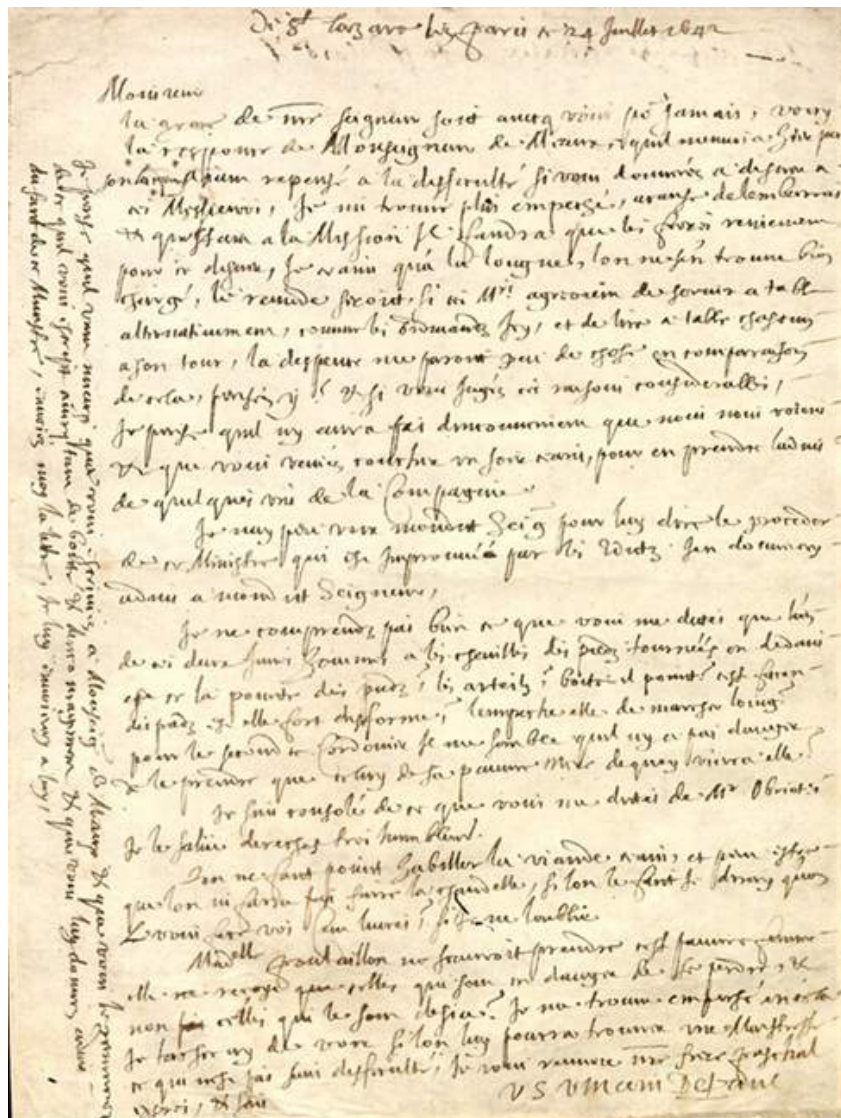 De St Lazare lez paris ce 24 Juillet 1642
Monsieur
la grace de nre seigneur soit avecq vous po' Jamais, voicy
la response de Monseigneur de Meaux, quil menvoia hier
repensé a la difficulté si vous donnerés a disner a
ces Messieurs, Je me trouve plus empesché, a cause de lembarras
a la Mission Il faudra que les freres reviennent
pour ce disner, Je crains qua la longue, lon ne sen trouve bien
chargé, le remede seroit, si ces Mrs agreoient de servir a table
alternativement, comme les ordinandz Icy, et de lire a table chascun
a son tour, la despence me paroit peu de chose en comparaison
de cela, pensés y & si vous Jugés ces raisons considerables,
Je pense quil ny aura pas dinconvenient que nous nous voions
& que vous veniés coucher un soir ceans, pour en prendre ladvis
de quelques uns de la Compagnie
Je nay peu voir mondit Seigr pour luy dire le proceder
de ce Ministre qui est Improuvé par les Edictz Jen donneray
advis a mondit Seigneur,
Je ne comprendz pas bien ce que vous me dites que lun
de ces deux Jeunes hommes a les chevilles des piedz tournées en dedans
est ce la pointe des piedz? les arteilz? boite il point? est
des piedz est elle fort difforme? lempeche elle de marcher loing
pour le second ce Cordonier Il me semble quil ny a pas danger
de le prendre que celuy de sa pauvre mere de quoy vivra elle?
Je suis consolé de ce que vous me dites de Mr Obriot
Je le salue derechef tres humblement.
Lon ne sait point habiller la viande ceans, et peu
que lon ne sache pas faire la chandelle, si lon le fait Je
Madelle poulaillon ne sauroit prendre cest pauvre femme
elle ne reçoit que celles qui sont en danger de se perdre, &
non pas celles qui le sont desja? Je me trouve empesché
Je tascheray de voir si lon luy pourra trouver une Maistresse
ce qui nest pas sans difficulté, Je vous renvoie nre frere paschal
& suis
V S Vincent Depaul
Je pense quil vaut mieux que vous escriviés a Monseigr de Meaux & que vous le
de ce quil vous escript avec tant de bonté & & que vous luy donniés advis
du fait de ce Ministre, envoiés moy la lettre, Je luy envoieray